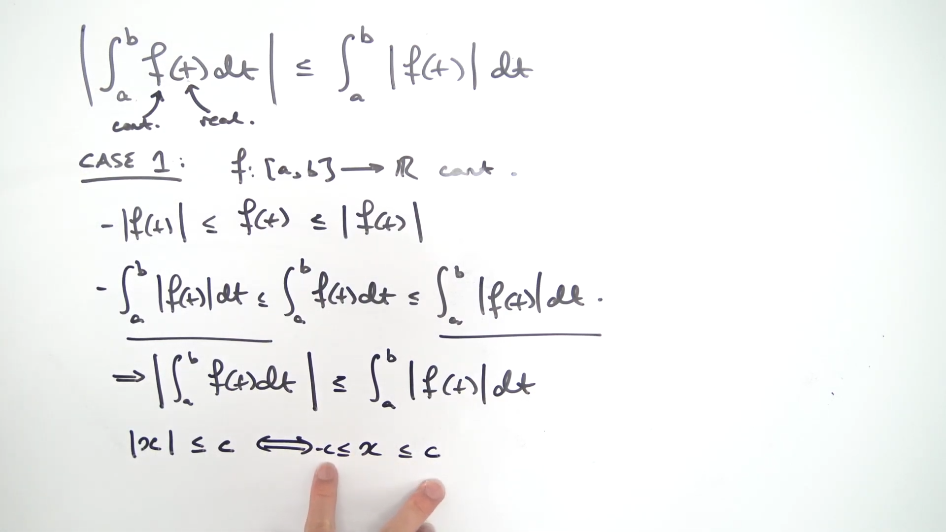 |∫_a^b f(t)dt| ≤ ∫_a^b |f(t)| dt
cont. real.
CASE 1: f: [a,b] → ℝ cont.
-|f(t)| ≤ f(t) ≤ |f(t)|
-∫_a^b |f(t)|dt ≤ ∫_a^b f(t)dt ≤ ∫_a^b |f(t)|dt.
⇒ |∫_a^b f(t)dt| ≤ ∫_a^b |f(t)|dt
|x| ≤ c ⟺ -c ≤ x ≤ c